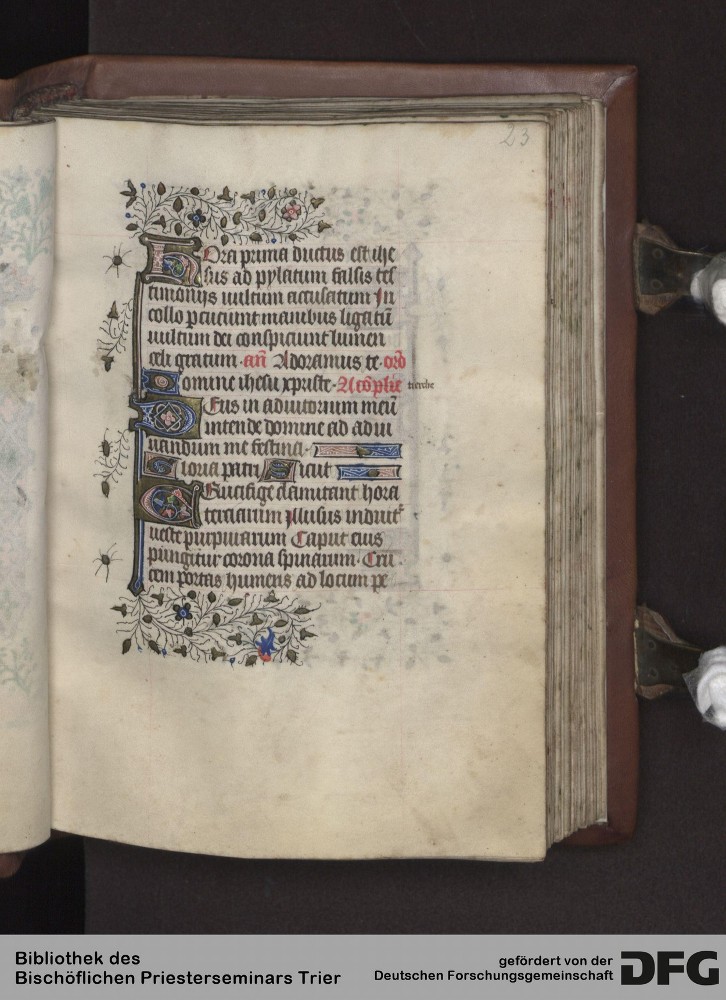 23
Hora prima ductus est ihe
sus ad pylatum falsis tes
timonijs multum accusatum In
collo percuciunt manibus ligatū
uultum dei conspiciunt lumen
celi gratum · an̄ Adoramus te · orō
Domine ihesu xpriste · A cōplie tierche
Deus in adiutorium meū
intende domine ad adiu
uandum me festina ·
Gloria patri Sicut
Crucifige clamitant hora
terciarum Illusus induit᷒
ueste purpurarum Caput eius
pungitur corona spinarum · Cru
cem portas humeris ad locum pe
Bibliothek des
Bischöflichen Priesterseminars Trier
gefördert von der
Deutschen Forschungsgemeinschaft DFG